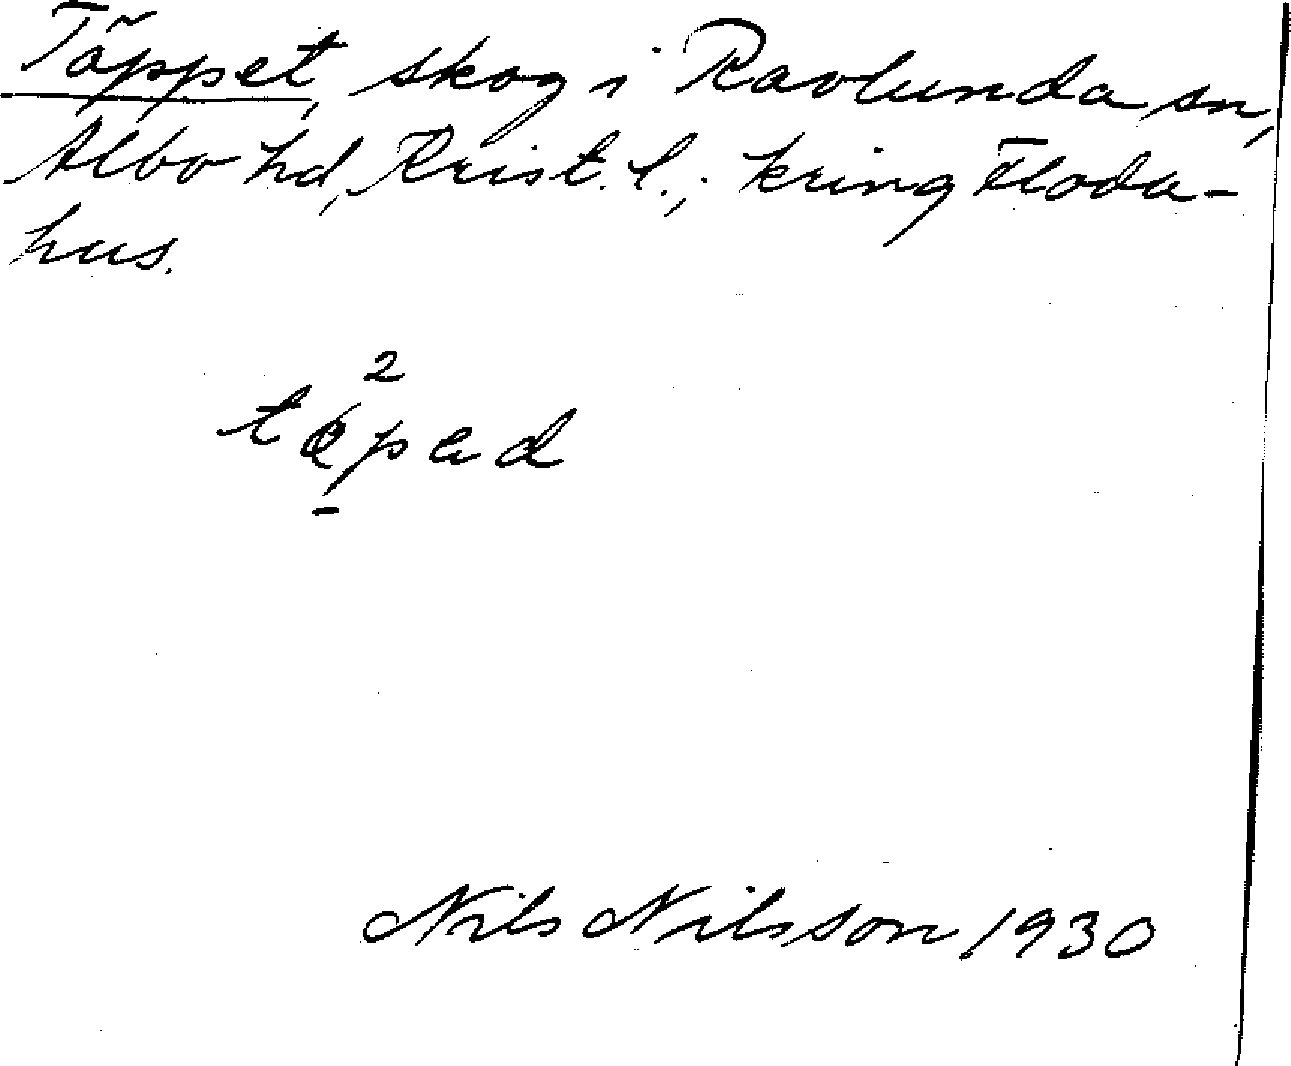 Täppet, skog i Ravlunda sn,
Albo hd, Krist. l.; kring Floda-
hus.
2
Nils Nilsson 1930